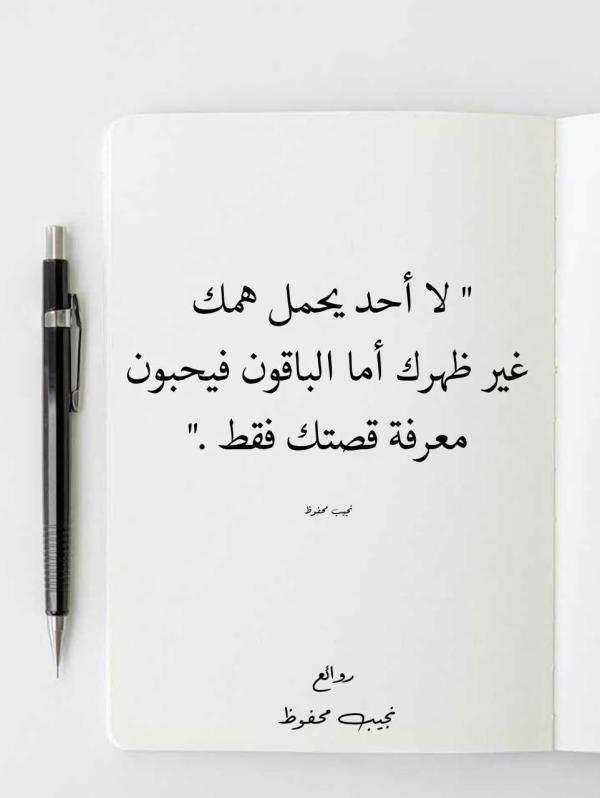 " لا أحد يحمل همك
غير ظهرك أما الباقون فيحبون
معرفة قصتك فقط ."
نجيب محفوظ
روائع
نجيب محفوظ